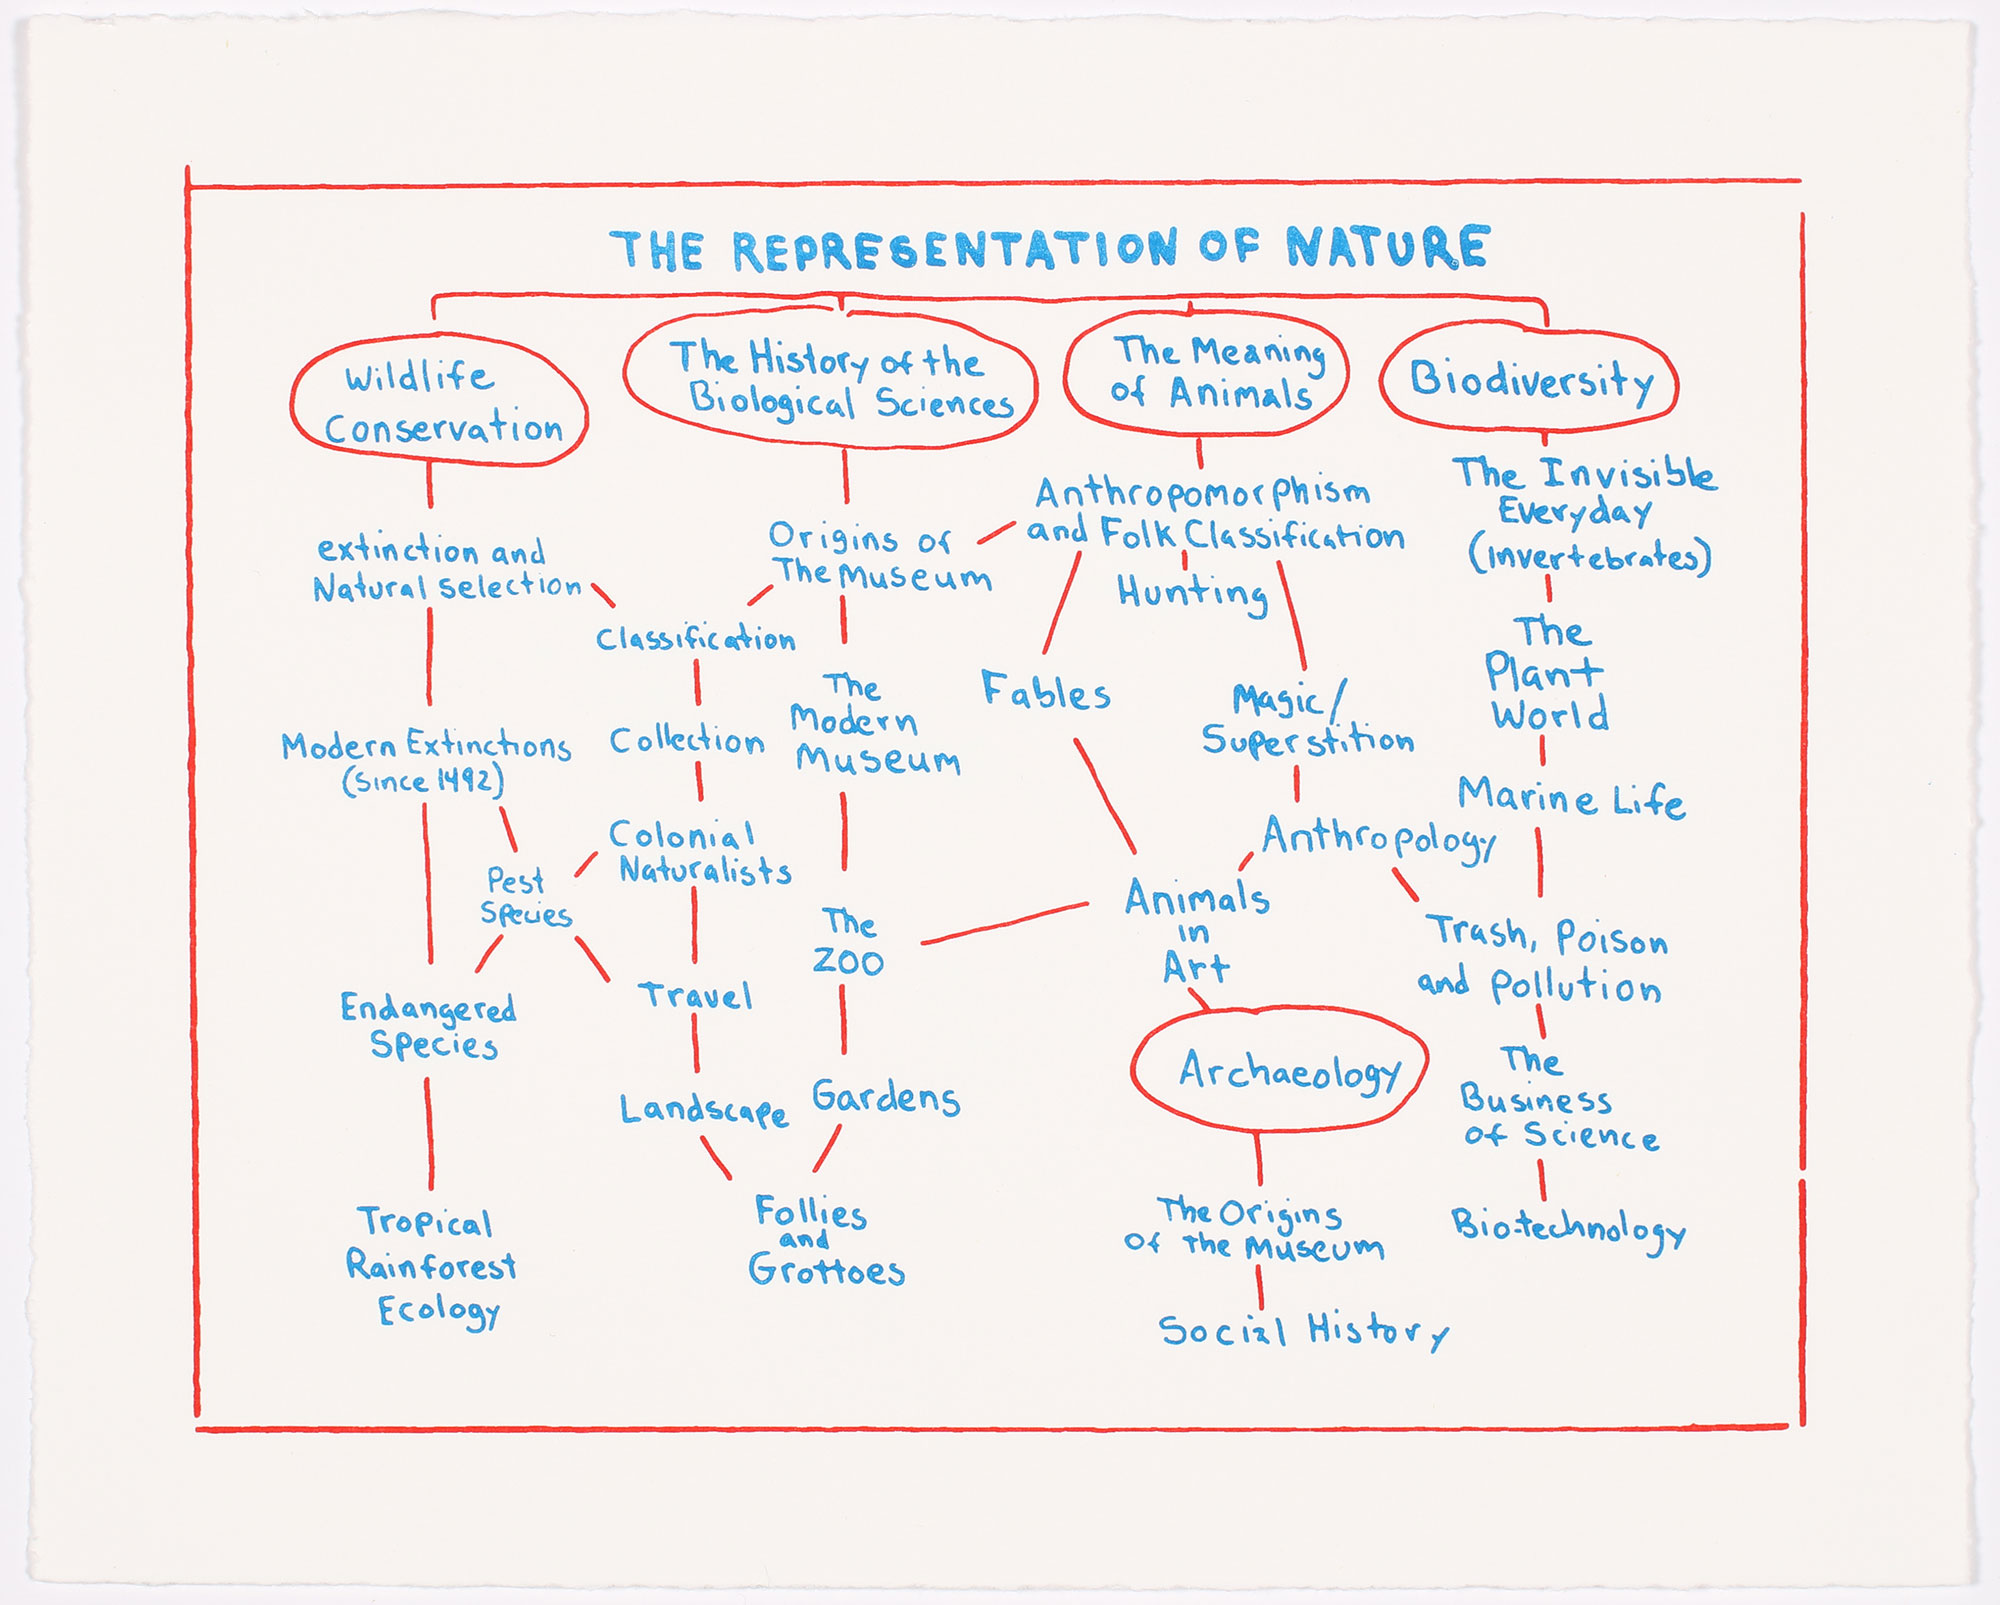 THE REPRESENTATION OF NATURE
Wildlife
Conservation
The History of the
Biological Sciences
The Meaning
of Animals
Biodiversity
extinction and
Natural selection
Modern Extinctions
(since 1492)
Pest
Species
Endangered
Species
Tropical
Rainforest
Ecology
Origins of
The Museum
Classification
Collection
Colonial
Naturalists
Travel
Landscape
The
Modern
Museum
The
Zoo
Gardens
Follies
and
Grottoes
Anthropomorphism
and Folk Classification
Hunting
Fables
Magic/
Superstition
Anthropology
Animals
in
Art
Archaeology
The Origins
of the Museum
Social History
The Invisible
Everyday
(Invertebrates)
The
Plant
World
Marine Life
Trash, Poison
and pollution
The
Business
of Science
Bio-technology